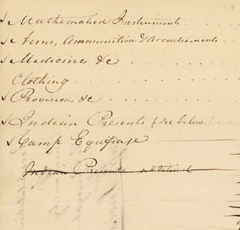 Mathematical Instruments
Arms, Ammunition & Accoutrements
Medicine &c
Clothing
Provisions, &c
Indian Presents (See below)
Camp Equipage
Indian Presents